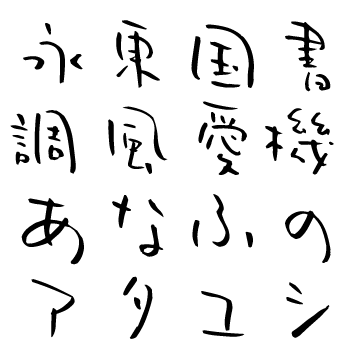 永東国書
調風愛機
あなふの
アタユシ